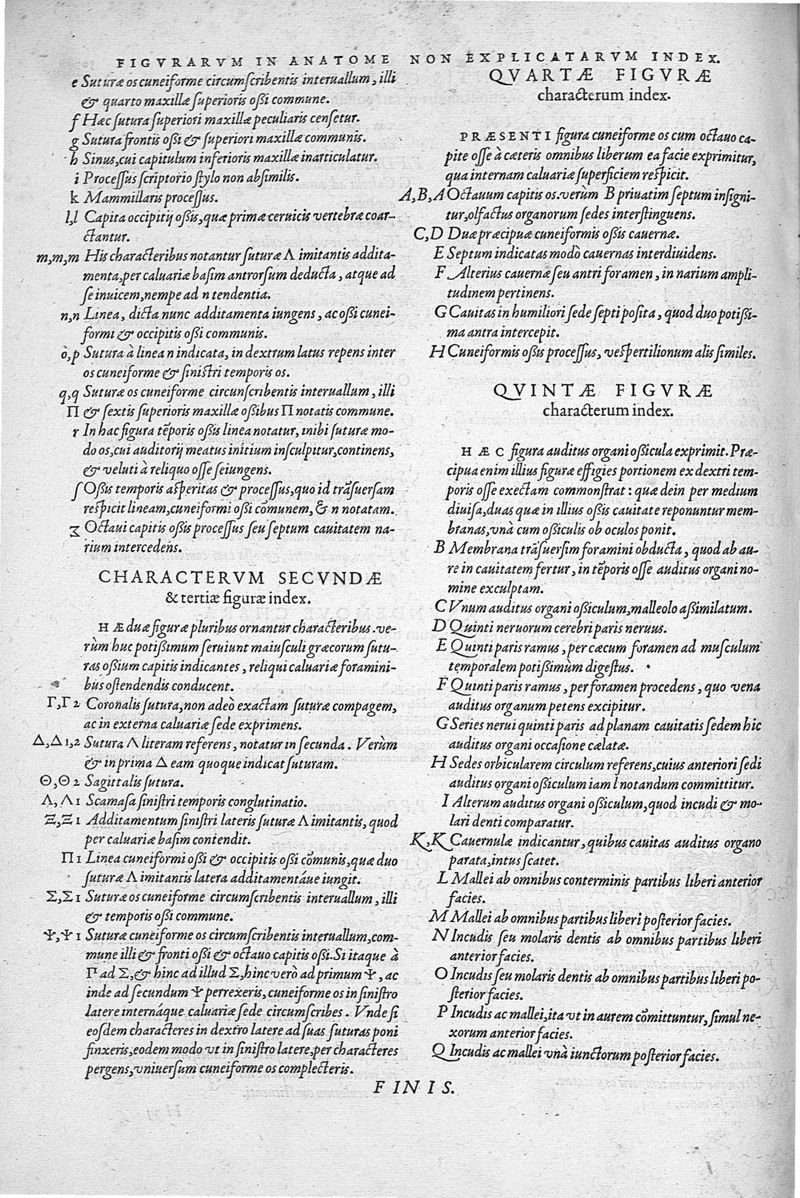 FIGVRARVM IN ANATOME NON EXPLICATARVM INDEX.
e Suturæ os cuneiforme circumſcribentis interuallum, illi
& quarto maxillæ ſuperioris oßi commune.
f Hæc ſutura ſuperiori maxillæ peculiaris cenſetur.
g Sutura frontis oßi & ſuperiori maxillæ communis.
h Sinus, cui capitulum inferioris maxillæ inarticulatur.
i Proceſſus ſcriptorio ſtylo non abſimilis.
k Mammillaris proceſſus.
l,l Capita occipitij oßis, quæ primæ ceruicis vertebræ coar-
ctantur.
m,m,m His characteribus notantur ſuturæ Λ imitantis addita-
menta, per caluariæ baſim antrorſum deducta, atque ad
ſe inuicem, nempe ad n tendentia.
n,n Linea, dicta nunc additamenta iungens, ac oßi cunei-
formi & occipitis oßi communis.
ò,p Sutura à linea n indicata, in dextrum latus repens inter
os cuneiforme & ſiniſtri temporis os.
q,q Suturæ os cuneiforme circunſcribentis interuallum, illi
Π & ſextis ſuperioris maxillæ oßibus Π notatis commune.
r In hac figura tēporis oßis linea notatur, inibi ſuturæ mo-
do os, cui auditorij meatus initium inſculpitur, continens,
& veluti à reliquo oſſe ſeiungens.
ſ Oßis temporis aſperitas & proceſſus, quo id trãſuerſam
reſpicit lineam, cuneiformi oßi cõmunem, & n notatam.
ʒ Octaui capitis oßis proceſſus ſeu ſeptum cauitatem na-
rium intercedens.
CHARACTERVM SECVNDÆ
& tertiæ figuræ index.
HÆ duæ figuræ pluribus ornantur characteribus. ve-
rùm huc potißimum ſeruiunt maiuſculi græcorum ſutu-
ras oßium capitis indicantes, reliqui caluariæ foramini-
bus oſtendendis conducent.
Γ,Γ 2 Coronalis ſutura, non adeò exactam ſuturæ compagem,
ac in externa caluariæ ſede exprimens.
Δ,Δ 1,2 Sutura Λ literam referens, notatur in ſecunda. Verùm
& in prima Δ eam quoque indicat ſuturam.
Θ,Θ 2 Sagittalis ſutura.
Λ,Λ 1 Scamaſa ſiniſtri temporis conglutinatio.
Ξ,Ξ 1 Additamentum ſiniſtri lateris ſuturæ Λ imitantis, quod
per caluariæ baſim contendit.
Π 1 Linea cuneiformi oßi & occipitis oßi cõmunis, quæ duo
ſuturæ Λ imitantis latera additamentáue iungit.
Σ,Σ 1 Suturæ os cuneiforme circumſcribentis interuallum, illi
& temporis oßi commune.
Ψ,Ψ 1 Suturæ cuneiforme os circumſcribentis interuallum, com-
mune illi & fronti oßi & octauo capitis oßi. Si itaque à
Γ ad Σ, & hinc ad illud Σ, hinc verò ad primum Ψ, ac
inde ad ſecundum Ψ perrexeris, cuneiforme os in ſiniſtro
latere internáque caluariæ ſede circumſcribes. Vnde ſi
eoſdem characteres in dextro latere ad ſuas ſuturas poni
finxeris, eodem modo vt in ſiniſtro latere, per characteres
pergens, vniuerſum cuneiforme os complecteris.
QVARTÆ FIGVRÆ
characterum index.
PRÆSENTI figura cuneiforme os cum octauo ca-
pite oſſe à cæteris omnibus liberum ea facie exprimitur,
qua internam caluariæ ſuperficiem reſpicit.
A,B,A Octauum capitis os. verùm B priuatim ſeptum inſigni-
tur, olfactus organorum ſedes interſtinguens.
C,D Duæ præcipuæ cuneiformis oßis cauernæ.
E Septum indicatas modò cauernas interdiuidens.
F Alterius cauernæ ſeu antri foramen, in narium ampli-
tudinem pertinens.
G Cauitas in humiliori ſede ſepti poſita, quod duo potißi-
ma antra intercepit.
H Cuneiformis oßis proceſſus, veſpertilionum alis ſimiles.
QVINTÆ FIGVRÆ
characterum index.
HÆC figura auditus organi oßicula exprimit. Præ-
cipua enim illius figuræ effigies portionem ex dextri tem-
poris oſſe exectam commonſtrat: quæ dein per medium
diuiſa, duas quæ in illius oßis cauitate reponuntur mem-
branas, vnà cum oßiculis ob oculos ponit.
B Membrana trãſuerſim foramini obducta, quod ab au-
re in cauitatem fertur, in tēporis oſſe auditus organi no-
mine exculptam.
C Vnum auditus organi oßiculum, malleolo aßimilatum.
D Quinti neruorum cerebri paris neruus.
E Quinti paris ramus, per cæcum foramen ad muſculum
temporalem potißimùm digeſtus.
F Quinti paris ramus, per foramen procedens, quo vena
auditus organum petens excipitur.
G Series nerui quinti paris ad planam cauitatis ſedem hic
auditus organi occaſione cælatæ.
H Sedes orbicularem circulum referens, cuius anteriori ſedi
auditus organi oßiculum iam I notandum committitur.
I Alterum auditus organi oßiculum, quod incudi & mo-
lari denti comparatur.
K,K Cauernulæ indicantur, quibus cauitas auditus organo
parata, intus ſcatet.
L Mallei ab omnibus conterminis partibus liberi anterior
facies.
M Mallei ab omnibus partibus liberi poſterior facies.
N Incudis ſeu molaris dentis ab omnibus partibus liberi
anterior facies.
O Incudis ſeu molaris dentis ab omnibus partibus liberi po-
ſterior facies.
P Incudis ac mallei, ita vt in aurem cõmittuntur, ſimul ne-
xorum anterior facies.
Q Incudis ac mallei vnà iunctorum poſterior facies.
FINIS.